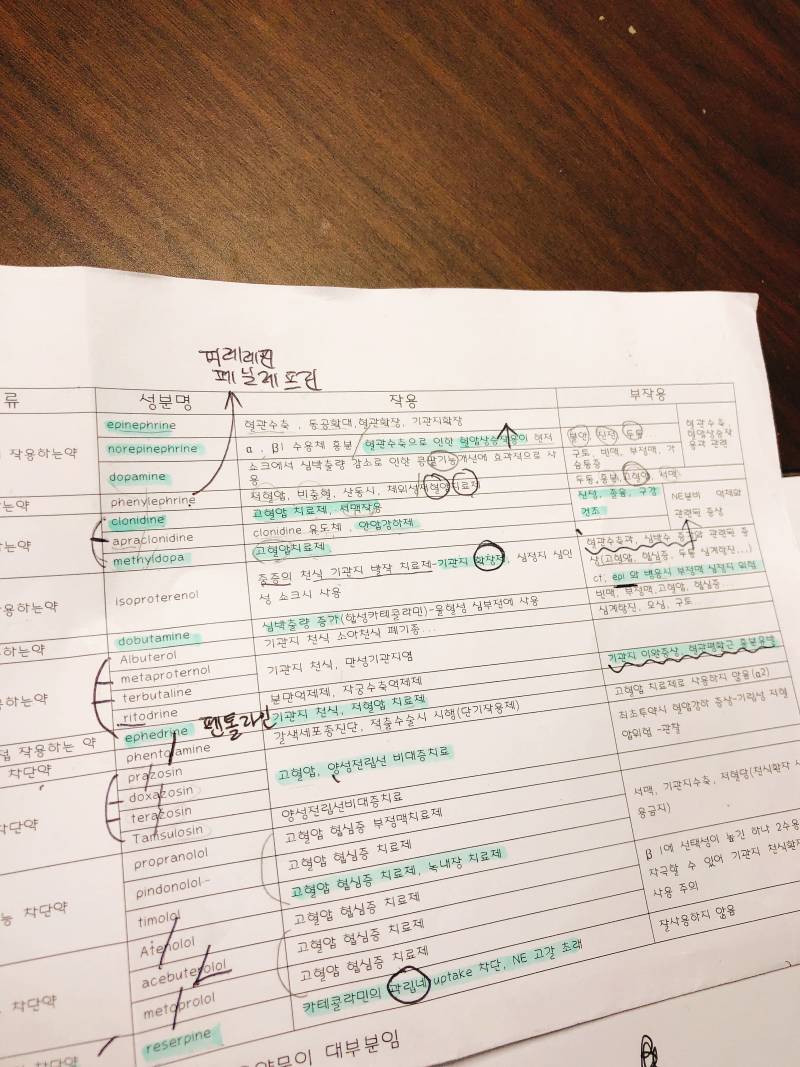 피레레핀
페닐레프린
류 성분명 작용 부작용
작용하는약 epinephrine 혈관수축, 동공확대, 혈관확장, 기관지확장
norepinephrine α, β1 수용체 흥분 혈관수축으로 인한 혈압상승작용이 현저 불안, 진전, 두통... 혈관수축, 혈압상승작용과 관련
dopamine 쇼크에서 심박출량 감소로 인한 콩팥기능개선에 효과적으로 사용 구토, 빈맥, 부정맥, 가슴통증
phenylephrine 저혈압, 비충혈, 산동시, 체위성저혈압치료제 두통, 흥분, 고혈압, 서맥
clonidine 고혈압 치료제, 서맥작용 진정, 졸음, 구강건조 NE분비 억제와 관련된 증상
apraclonidine clonidine 유도체, 안압강하제
methyldopa 고혈압치료제
용하는약 isoproterenol 중증의 천식 기관지 발작 치료제-기관지 확장제, 심정지 심인성 쇼크시 사용 혈관수축과, 심박수 증가와 관련된 증상(고혈압, 협심증, 두통 심계항진...)
epi 와 병용시 부정맥 심정지 위험
dobutamine 심박출량 증가(합성카테콜라민)-울혈성 심부전에 사용 빈맥, 부정맥,고혈압, 협심증
Albuterol 기관지 천식 소아천식 폐기종... 심계항진, 오심, 구토
metaproternol 기관지 천식, 만성기관지염
terbutaline
ritodrine 분만억제제, 자궁수축억제제
ephedrine 기관지 천식, 저혈압 치료제 기관지 이완증상, 혈관평활근 흥분유발
펜톨라민
접 작용하는 약
차단약 phentolamine 갈색세포종진단, 적출수술시 시행(단기작용제) 고혈압 치료제로 사용하지 않음(α2)
차단약 prazosin 고혈압, 양성전립선 비대증치료 최초투약시 혈압강하 증상-기립성 저혈압위험 -관찰
doxazosin
terazosin
Tamsulosin 양성전립선비대증치료
능 차단약 propranolol 고혈압 협심증 부정맥치료제 서맥, 기관지수축, 저혈당(천식환자 사용금지)
pindonolol- 고혈압 협심증 치료제
timolol 고혈압 협심증 치료제, 녹내장 치료제
차단약 Atenolol 고혈압 협심증 치료제 β1에 선택성이 높긴 하나 2수용 자극할 수 있어 기관지 천식환자 사용 주의
acebuterolol 고혈압 협심증 치료제
metoprolol 고혈압 협심증 치료제
차단약 reserpine 카테콜라민의 과립내 uptake 차단, NE 고갈 초래 잘사용하지 않음
대부분임